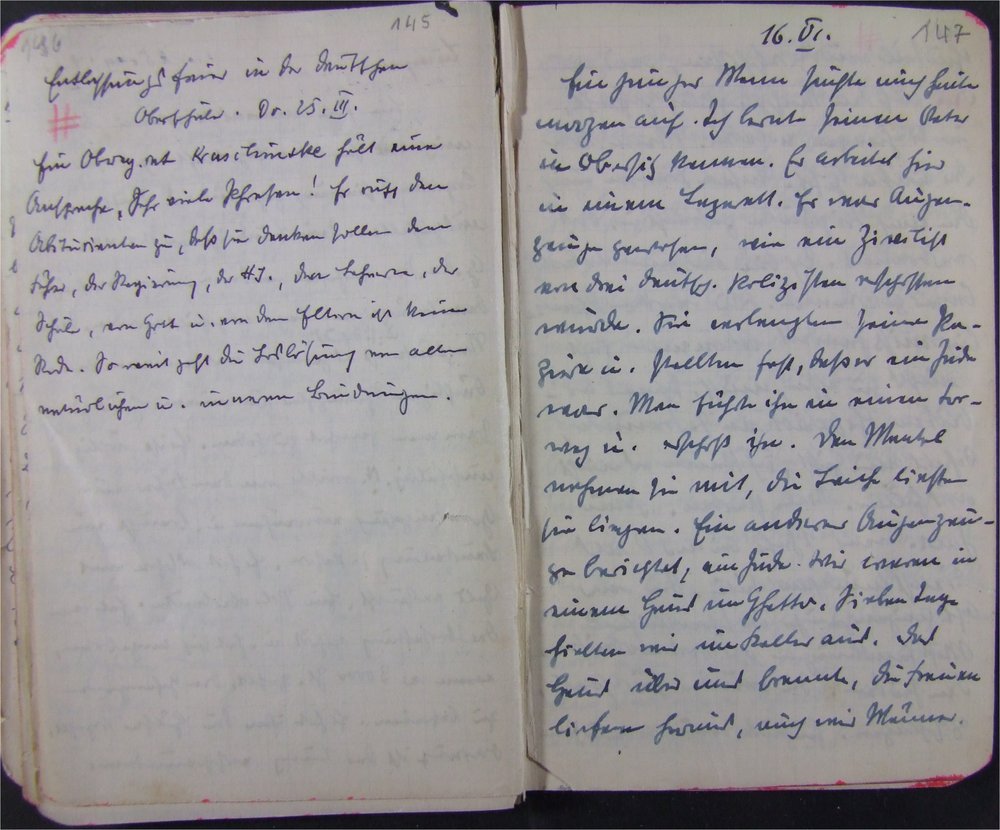 146
145
Entlassungsfeier in der deutschen
Oberschule. Do. 25. III.
#
Ein Obreg. rat hält eine
Ansprache. Sehr viele Phrasen! Er ruft den
Abiturienten zu, daß sie danken sollen dem
Führer, der Regierung, der HJ., den Lehrern, der
Schule, von Gott u. von den Eltern ist keine
Rede. So weit geht die Loslösung von allen
natürlichen u. inneren Bindungen.
16. VI.
147
Ein junger Mann suchte mich heute
morgen auf. Ich lernte seinen Vater
in Obersitz kennen. Er arbeitet hier
in einem Lazarett. Er war Augen-
zeuge gewesen, wie ein Zivilist
von drei deutsch. Polizisten erschossen
wurde. Sie verlangten seine Pa-
piere u. stellten fest, daß er ein Jude
war. Man führte ihn in einen Tor-
weg u. erschoß ihn. Den Mantel
nahmen sie mit, die Leiche ließen
sie liegen. Ein anderer Augenzeu-
ge berichtet, ein Jude. Wir waren in
einem Haus im Ghetto. Sieben Tage
hielten wir im Keller aus. Das
Haus über uns brannte, die Frauen
liefen heraus, auch wir Männer.